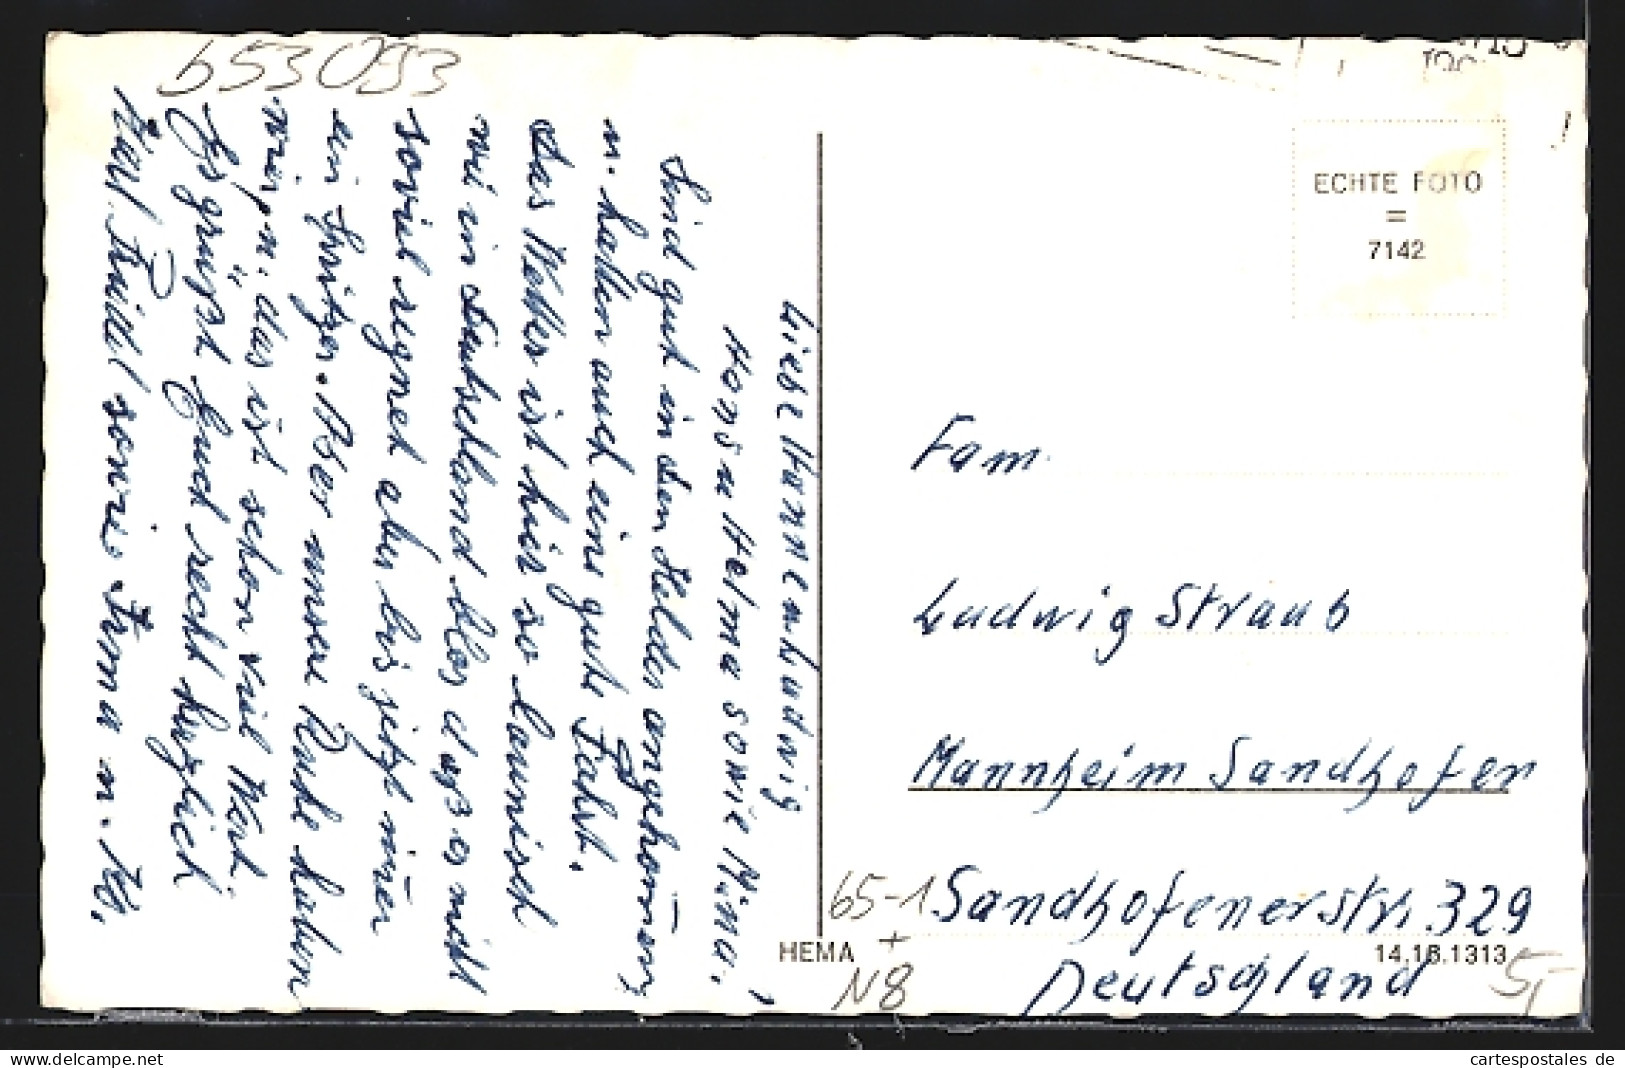 653093
Liebe Hannen Ludwig
Hans u Helma sowie Mina.
Sind gut in den Helder angekom̄men
u. hatten auch eine gute Fahrt.
das Wetter ist hier so launisch
wie in Deutschland blos dass es nicht
soviel regnet aber bis jetzt im̄er
ein Spritzer. Aber unsere Ruhe haben
wir, u. das ist schon viel Wert.
Es grüsst Euch recht herzlich
Karl
sowie Irma u. M.
ECHTE FOTO
=
7142
Fam.
Ludwig Straub
Mannheim Sandhofen
Sandhofenerstr. 329
Deutschland
65-1
+
N8
HEMA
14.18.1313
5,-
cartespostales de